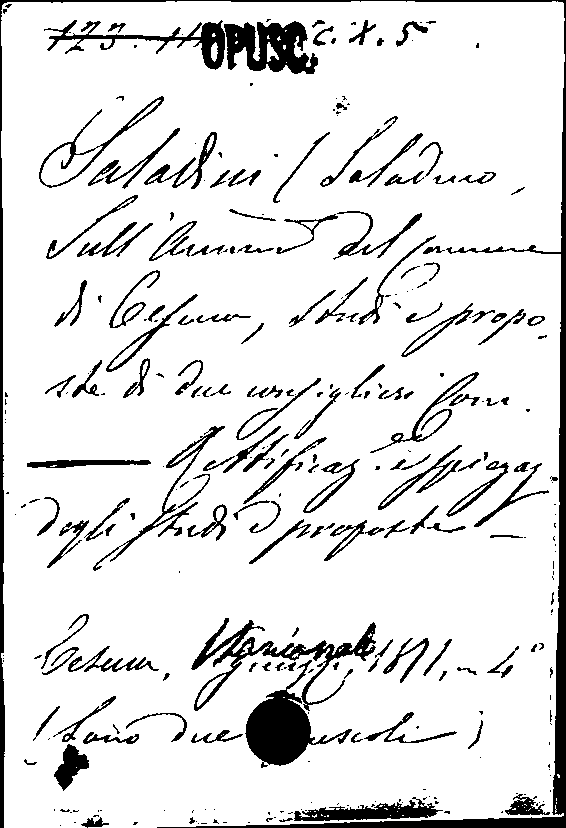 123. 11 OPUSC. C. X. 5
Saladini (Saladino,
Sull' Ammin del Comune
di Cesena, studi e propo-
ste di due consiglieri Com.
— Rettificaz. e spiegaz.
degli studi e proposte —
Cesena, Nazionale, 1871, in 4°
(Sono due opuscoli)